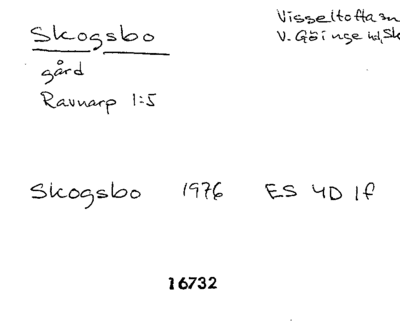 Skogsbo
Visseltofta sn
V. Göinge hd, Sk
gård
Ravnarp 1:5
Skogsbo 1976 ES 4D 1f
16732